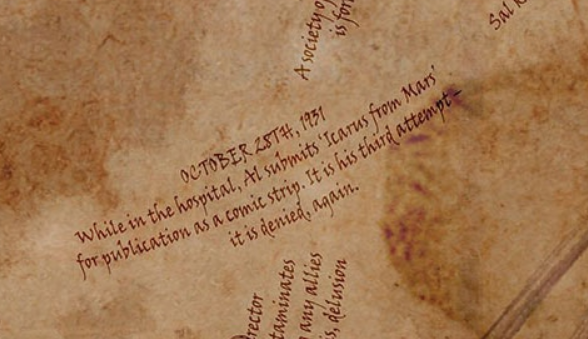 A society o
is for
Sal
OCTOBER 28TH, 1931
While in the hospital, Al submits 'Icarus from Mars'
for publication as a comic strip. It is his third attempt -
it is denied, again.
rector
taminates
any allies
is, delusion